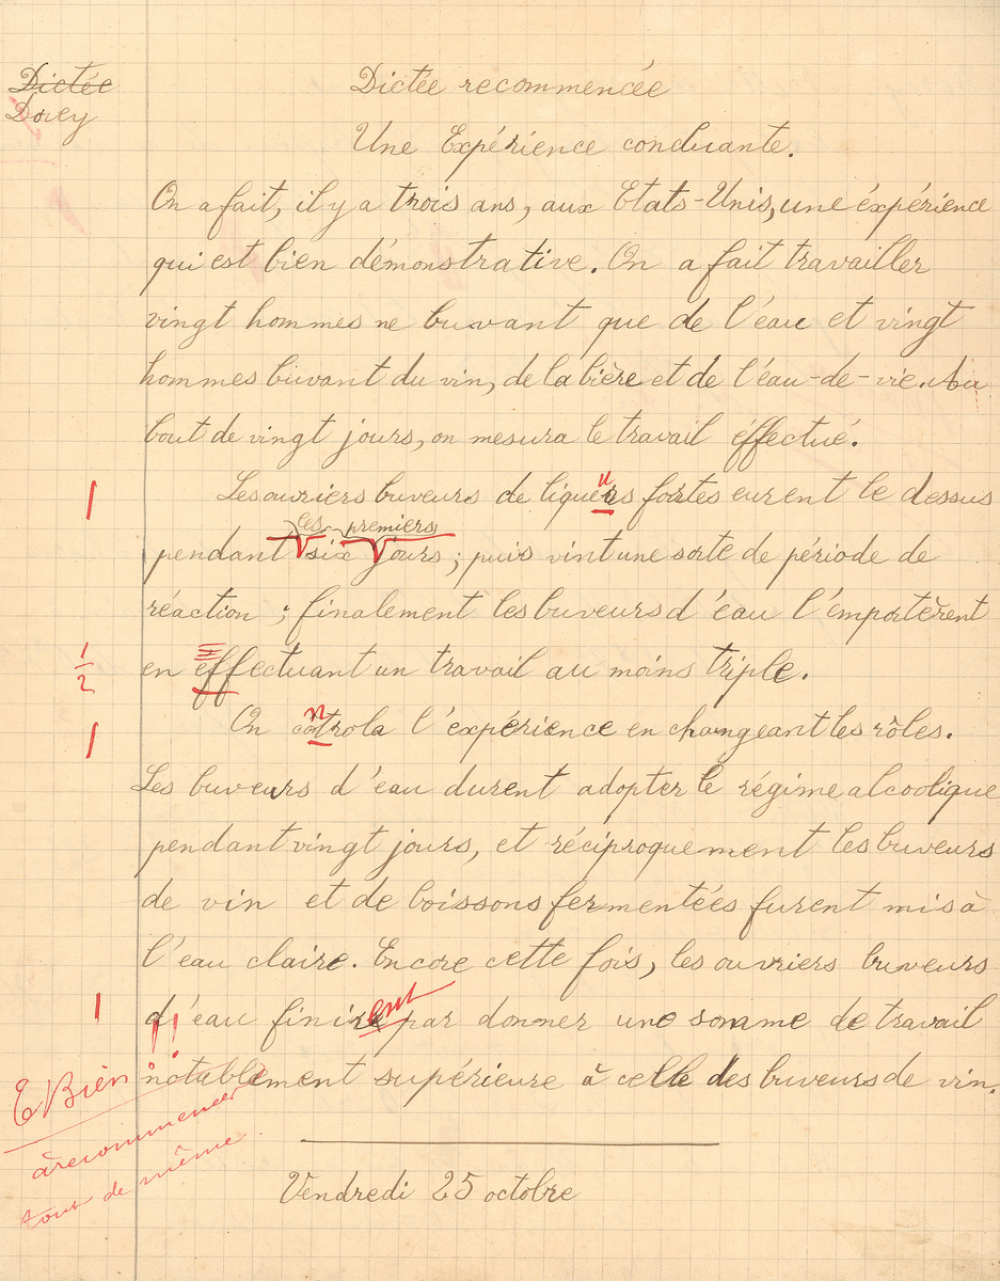 Dictée
Dovey
Dictée recommencée
Une Expérience concluante.
On a fait, il y a trois ans, aux Etats-Unis, une éxpérience
qui est bien démonstrative. On a fait travailler
vingt hommes ne buvant que de l'eau et vingt
hommes buvant du vin, de la bière et de l'éau-de-vie. Au
bout de vingt jours, on mesura le travail éffectué.
1
Les ouvriers buveurs de liqueurs fortes eurent le dessus
les premiers
pendant six jours ; puis vint une sorte de période de
réaction ; finalement les buveurs d'eau l'emportèrent
1/2
en effectuant un travail au moins triple.
1
On controla l'expérience en changeant les rôles.
Les buveurs d'eau durent adopter le régime alcoolique
pendant vingt jours, et réciproquement les buveurs
de vin et de boissons fermentées furent mis à
l'eau claire. Encore cette fois, les ouvriers buveurs
1
d'eau finirent par donner une somme de travail
notablement supérieure à celle des buveurs de vin.
E Bien !!
à recommencer
tout de même
Vendredi 25 octobre